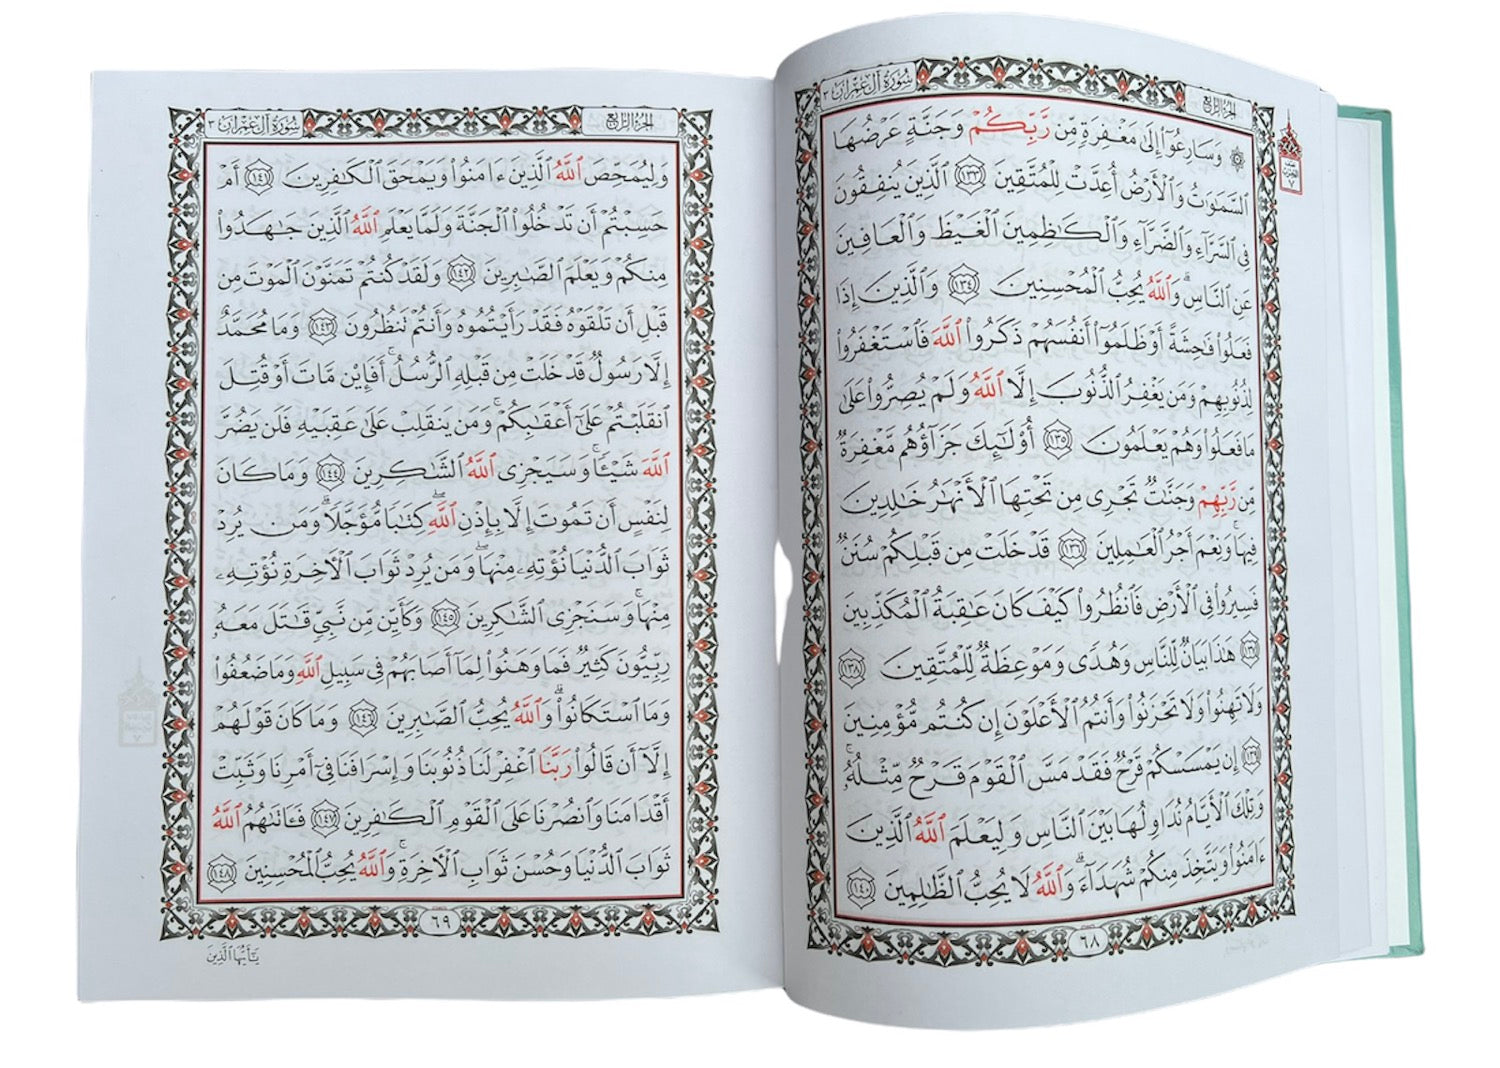 الجُزْءُ الرَّابِعُ
سُورَةُ آلِ عِمْرَانَ ٣
نصف
الحزب
٧
۞ وَسَارِعُوٓا۟ إِلَىٰ مَغْفِرَةٍ مِّن رَّبِّكُمْ وَجَنَّةٍ عَرْضُهَا
ٱلسَّمَٰوَٰتُ وَٱلْأَرْضُ أُعِدَّتْ لِلْمُتَّقِينَ ١٣٣ ٱلَّذِينَ يُنفِقُونَ
فِى ٱلسَّرَّآءِ وَٱلضَّرَّآءِ وَٱلْكَٰظِمِينَ ٱلْغَيْظَ وَٱلْعَافِينَ
عَنِ ٱلنَّاسِ ۗ وَٱللَّهُ يُحِبُّ ٱلْمُحْسِنِينَ ١٣٤ وَٱلَّذِينَ إِذَا
فَعَلُوا۟ فَٰحِشَةً أَوْ ظَلَمُوٓا۟ أَنفُسَهُمْ ذَكَرُوا۟ ٱللَّهَ فَٱسْتَغْفَرُوا۟
لِذُنُوبِهِمْ وَمَن يَغْفِرُ ٱلذُّنُوبَ إِلَّا ٱللَّهُ وَلَمْ يُصِرُّوا۟ عَلَىٰ
مَا فَعَلُوا۟ وَهُمْ يَعْلَمُونَ ١٣٥ أُو۟لَٰٓئِكَ جَزَآؤُهُم مَّغْفِرَةٌ
مِّن رَّبِّهِمْ وَجَنَّٰتٌ تَجْرِى مِن تَحْتِهَا ٱلْأَنْهَٰرُ خَٰلِدِينَ
فِيهَا ۚ وَنِعْمَ أَجْرُ ٱلْعَٰمِلِينَ ١٣٦ قَدْ خَلَتْ مِن قَبْلِكُمْ سُنَنٌ
فَسِيرُوا۟ فِى ٱلْأَرْضِ فَٱنظُرُوا۟ كَيْفَ كَانَ عَٰقِبَةُ ٱلْمُكَذِّبِينَ
١٣٧ هَٰذَا بَيَانٌ لِّلنَّاسِ وَهُدًى وَمَوْعِظَةٌ لِّلْمُتَّقِينَ ١٣٨
وَلَا تَهِنُوا۟ وَلَا تَحْزَنُوا۟ وَأَنتُمُ ٱلْأَعْلَوْنَ إِن كُنتُم مُّؤْمِنِينَ
١٣٩ إِن يَمْسَسْكُمْ قَرْحٌ فَقَدْ مَسَّ ٱلْقَوْمَ قَرْحٌ مِّثْلُهُۥ ۚ
وَتِلْكَ ٱلْأَيَّامُ نُدَاوِلُهَا بَيْنَ ٱلنَّاسِ وَلِيَعْلَمَ ٱللَّهُ ٱلَّذِينَ
ءَامَنُوا۟ وَيَتَّخِذَ مِنكُمْ شُهَدَآءَ ۗ وَٱللَّهُ لَا يُحِبُّ ٱلظَّٰلِمِينَ ١٤٠
٦٨
الجُزْءُ الرَّابِعُ
سُورَةُ آلِ عِمْرَانَ ٣
وَلِيُمَحِّصَ ٱللَّهُ ٱلَّذِينَ ءَامَنُوا۟ وَيَمْحَقَ ٱلْكَٰفِرِينَ ١٤١ أَمْ
حَسِبْتُمْ أَن تَدْخُلُوا۟ ٱلْجَنَّةَ وَلَمَّا يَعْلَمِ ٱللَّهُ ٱلَّذِينَ جَٰهَدُوا۟
مِنكُمْ وَيَعْلَمَ ٱلصَّٰبِرِينَ ١٤٢ وَلَقَدْ كُنتُمْ تَمَنَّوْنَ ٱلْمَوْتَ مِن
قَبْلِ أَن تَلْقَوْهُ فَقَدْ رَأَيْتُمُوهُ وَأَنتُمْ تَنظُرُونَ ١٤٣ وَمَا مُحَمَّدٌ
إِلَّا رَسُولٌ قَدْ خَلَتْ مِن قَبْلِهِ ٱلرُّسُلُ ۚ أَفَإِي۟ن مَّاتَ أَوْ قُتِلَ
ٱنقَلَبْتُمْ عَلَىٰٓ أَعْقَٰبِكُمْ ۚ وَمَن يَنقَلِبْ عَلَىٰ عَقِبَيْهِ فَلَن يَضُرَّ
ٱللَّهَ شَيْـًٔا ۗ وَسَيَجْزِى ٱللَّهُ ٱلشَّٰكِرِينَ ١٤٤ وَمَا كَانَ
لِنَفْسٍ أَن تَمُوتَ إِلَّا بِإِذْنِ ٱللَّهِ كِتَٰبًا مُّؤَجَّلًا ۗ وَمَن يُرِدْ
ثَوَابَ ٱلدُّنْيَا نُؤْتِهِۦ مِنْهَا ۖ وَمَن يُرِدْ ثَوَابَ ٱلْأَخِرَةِ نُؤْتِهِۦ
مِنْهَا ۚ وَسَنَجْزِى ٱلشَّٰكِرِينَ ١٤٥ وَكَأَيِّن مِّن نَّبِىٍّ قَٰتَلَ مَعَهُۥ
رِبِّيُّونَ كَثِيرٌ فَمَا وَهَنُوا۟ لِمَآ أَصَابَهُمْ فِى سَبِيلِ ٱللَّهِ وَمَا ضَعُفُوا۟
وَمَا ٱسْتَكَانُوا۟ ۗ وَٱللَّهُ يُحِبُّ ٱلصَّٰبِرِينَ ١٤٦ وَمَا كَانَ قَوْلَهُمْ
إِلَّآ أَن قَالُوا۟ رَبَّنَا ٱغْفِرْ لَنَا ذُنُوبَنَا وَإِسْرَافَنَا فِىٓ أَمْرِنَا وَثَبِّتْ
أَقْدَامَنَا وَٱنصُرْنَا عَلَى ٱلْقَوْمِ ٱلْكَٰفِرِينَ ١٤٧ فَـَٔاتَىٰهُمُ ٱللَّهُ
ثَوَابَ ٱلدُّنْيَا وَحُسْنَ ثَوَابِ ٱلْأَخِرَةِ ۗ وَٱللَّهُ يُحِبُّ ٱلْمُحْسِنِينَ ١٤٨
٦٩
يَٰٓأَيُّهَا ٱلَّذِينَ